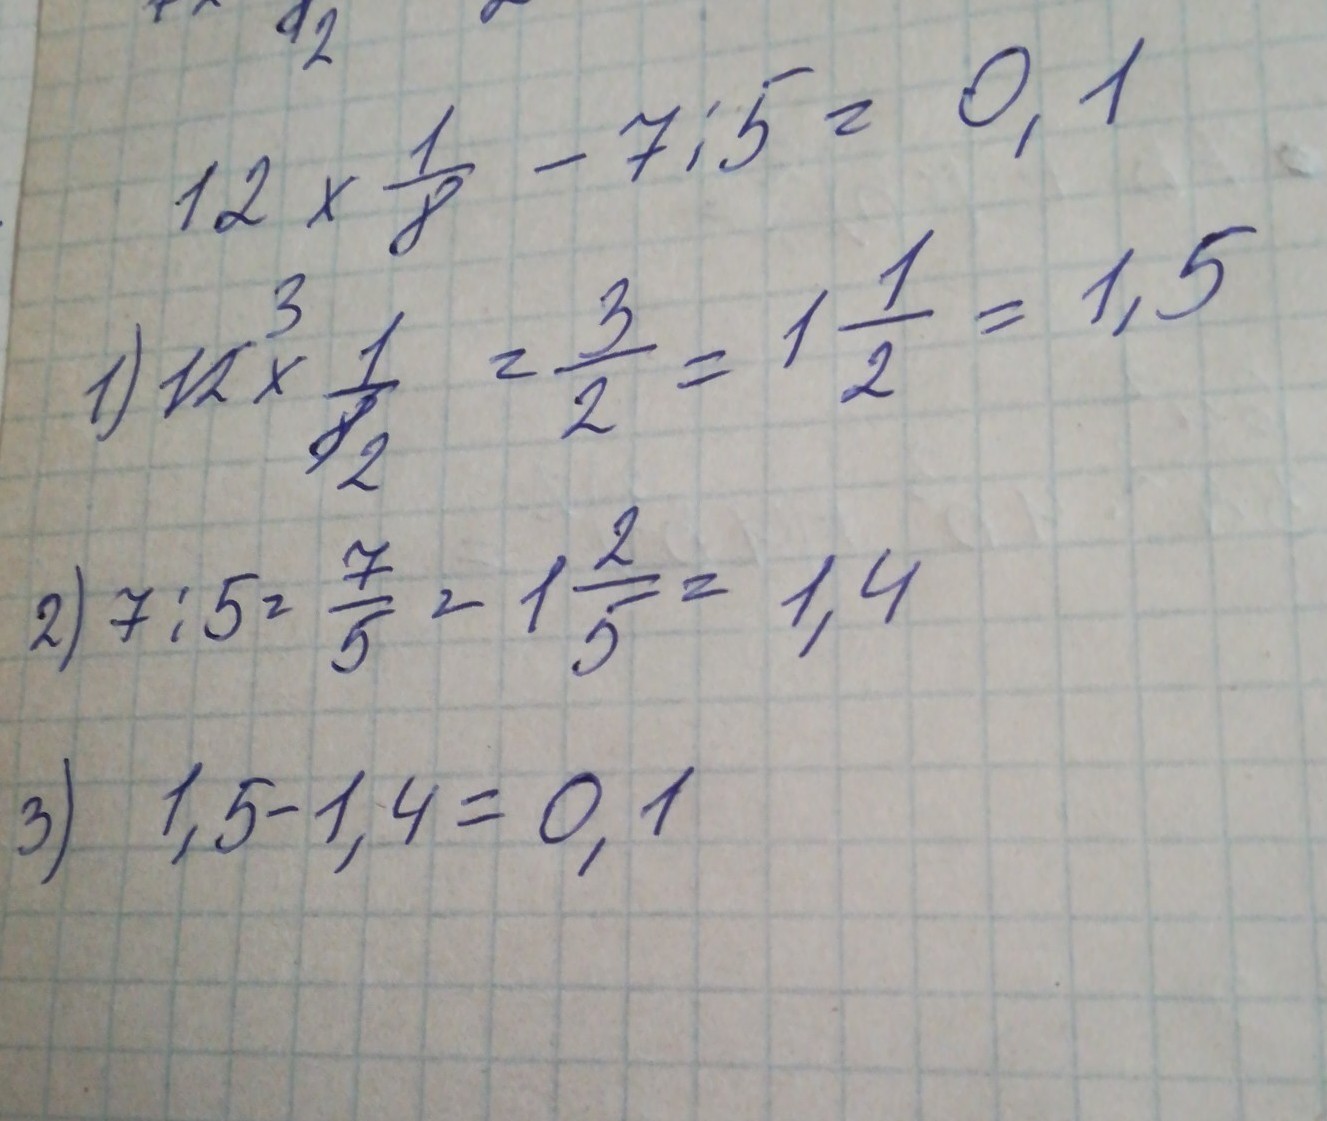 12 × 1/8 − 7 : 5 = 0,1
1) 12 3 × 1/8 2 = 3/2 = 1 1/2 = 1,5
2) 7 : 5 = 7/5 = 1 2/5 = 1,4
3) 1,5 − 1,4 = 0,1